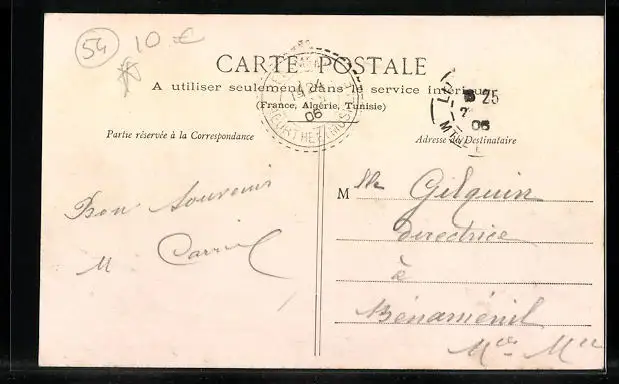 54 10 €
CARTE POSTALE
A utiliser seulement dans le service intérieur
(France, Algérie, Tunisie)
Partie réservée à la Correspondance
Adresse du Destinataire
06
MEURTHE ET MOSELLE
25
06
Bon Souvenir
M
Mlle Gilquin
directrice
à
Bénaménil
Mthe Mlle